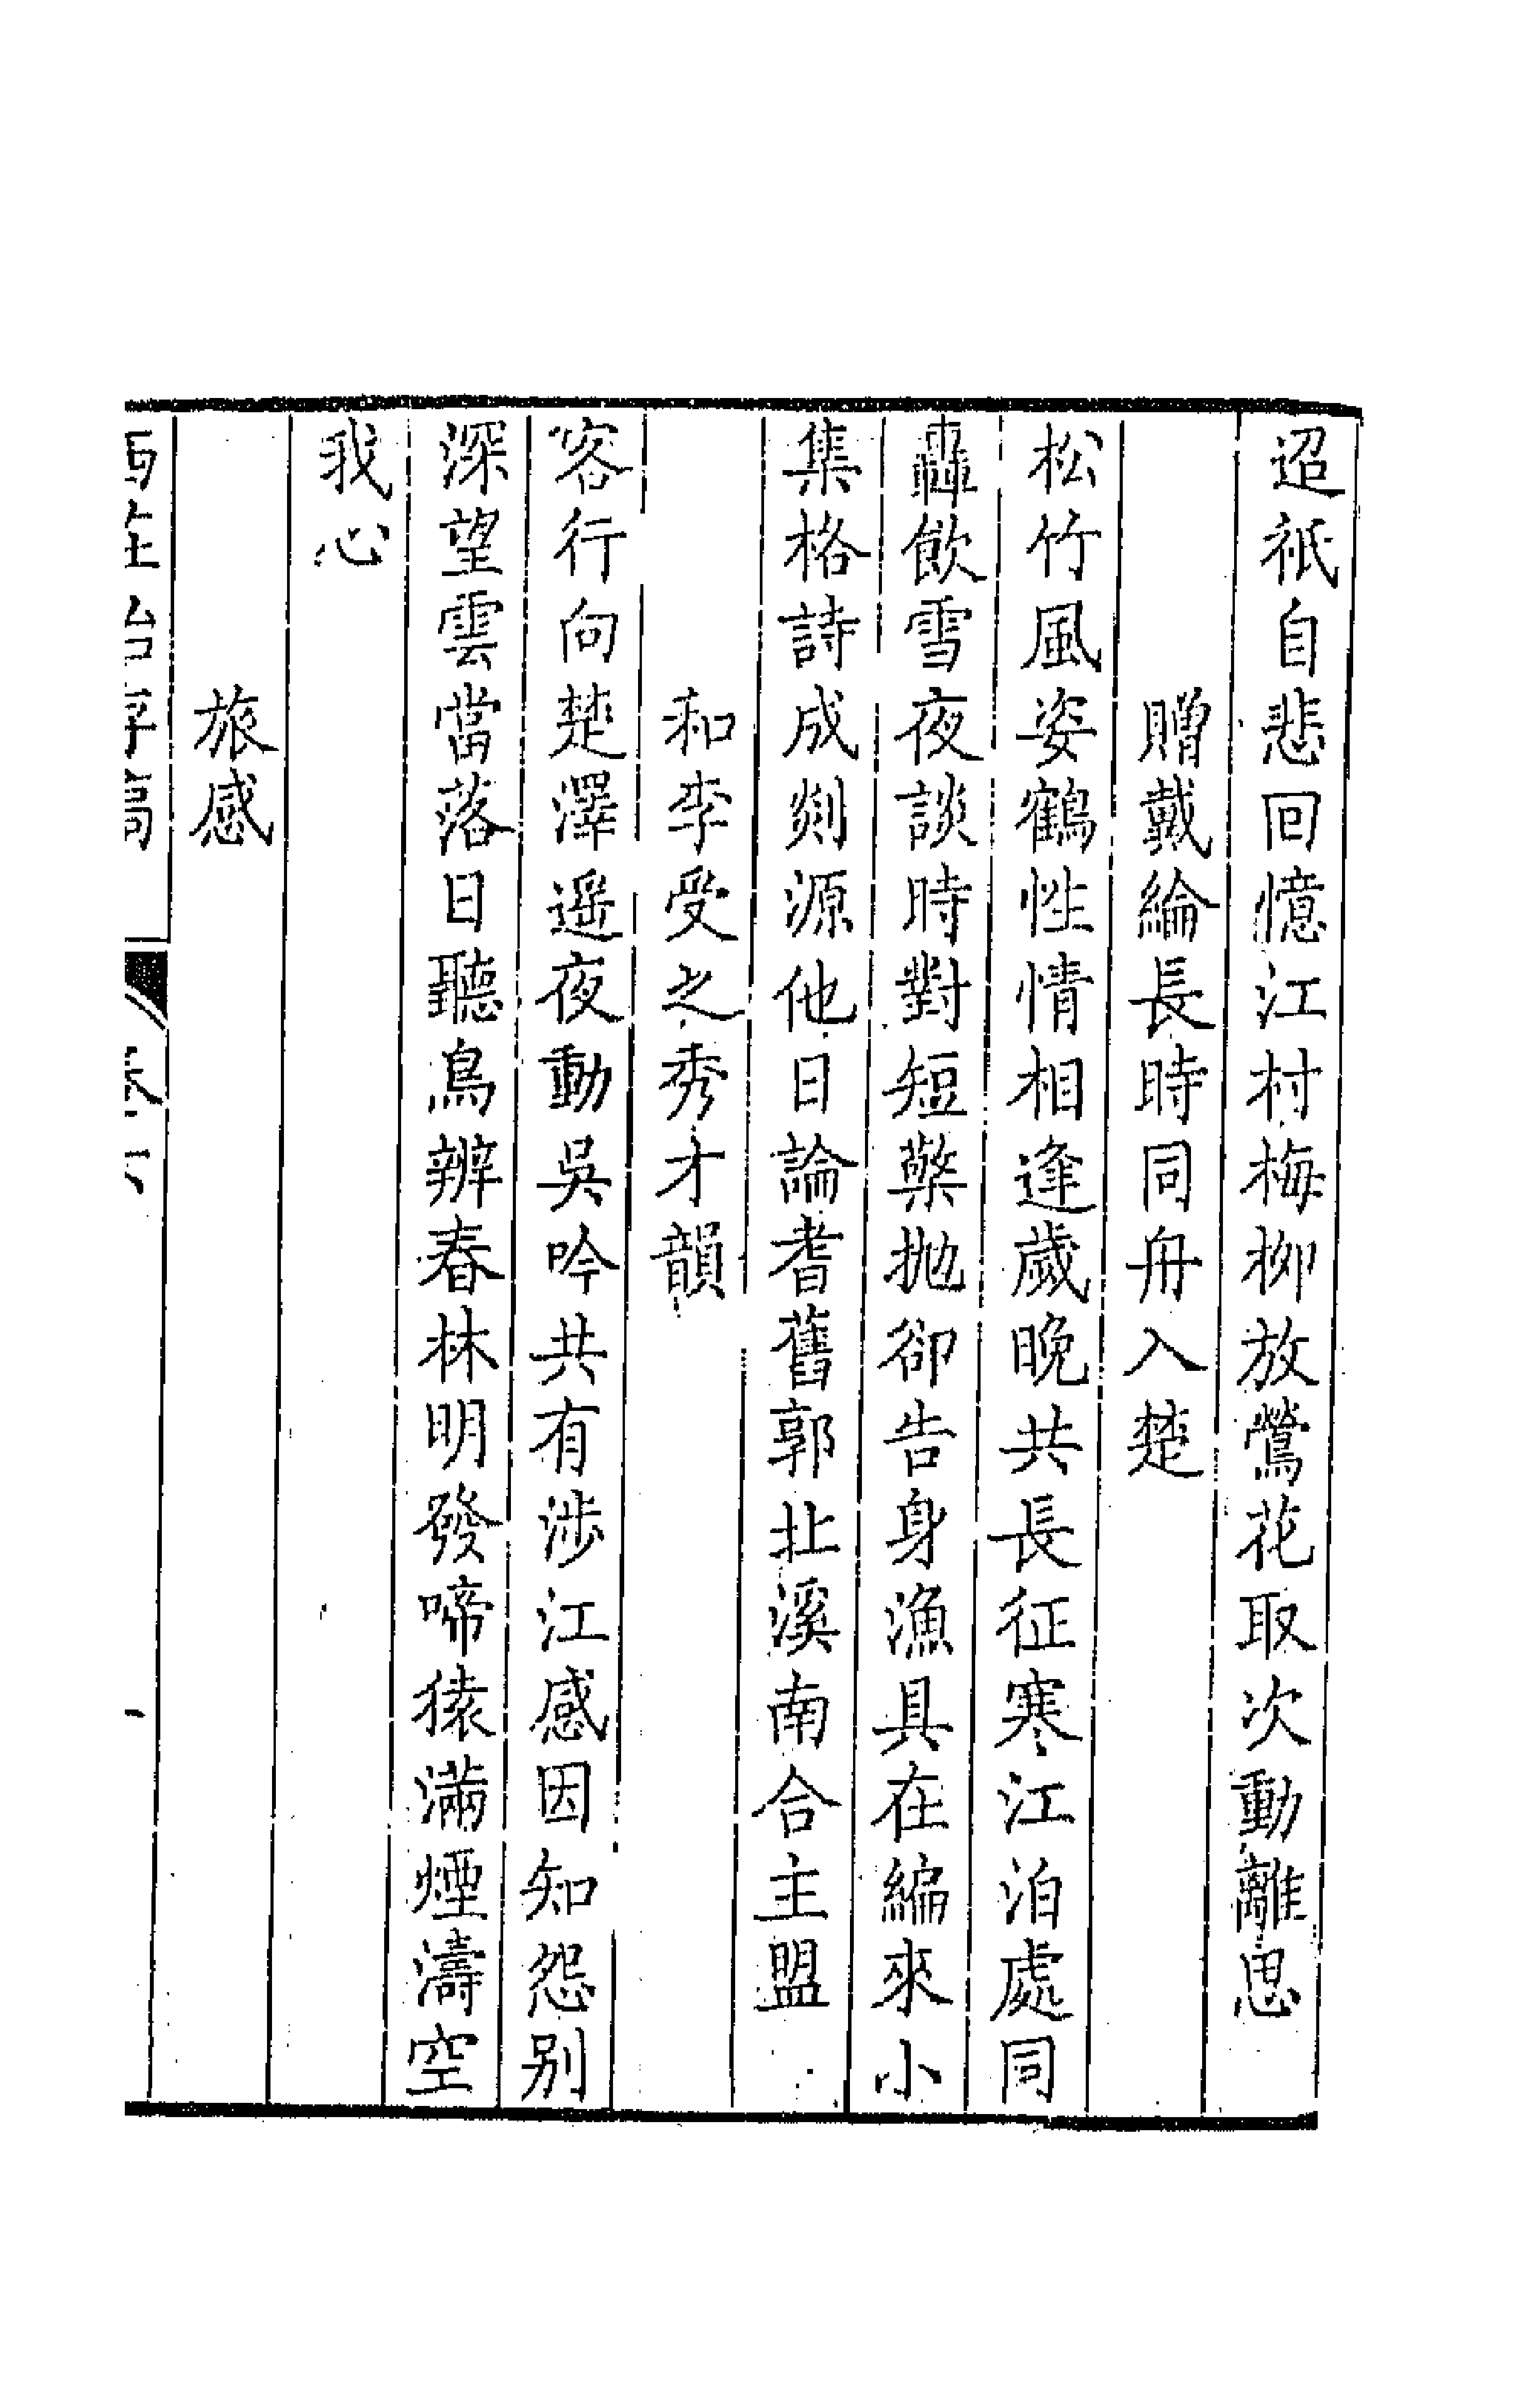 迢祇自悲回憶江村梅栁放鶯花取次動離思
贈戴綸長時同舟入楚
松竹風姿鶴性情相逢歲晚共長征寒江泊處同
轟飲雪夜談時對短檠抛卻告身漁具在編來小
集格詩成剡源他日論耆舊郭北溪南合主盟
和李受之秀才韻
客行向楚澤遥夜動吳吟共有涉江感因知怨别
深望雲當落日聽鳥辨春林明發啼猿滿煙濤空
我心
旅感